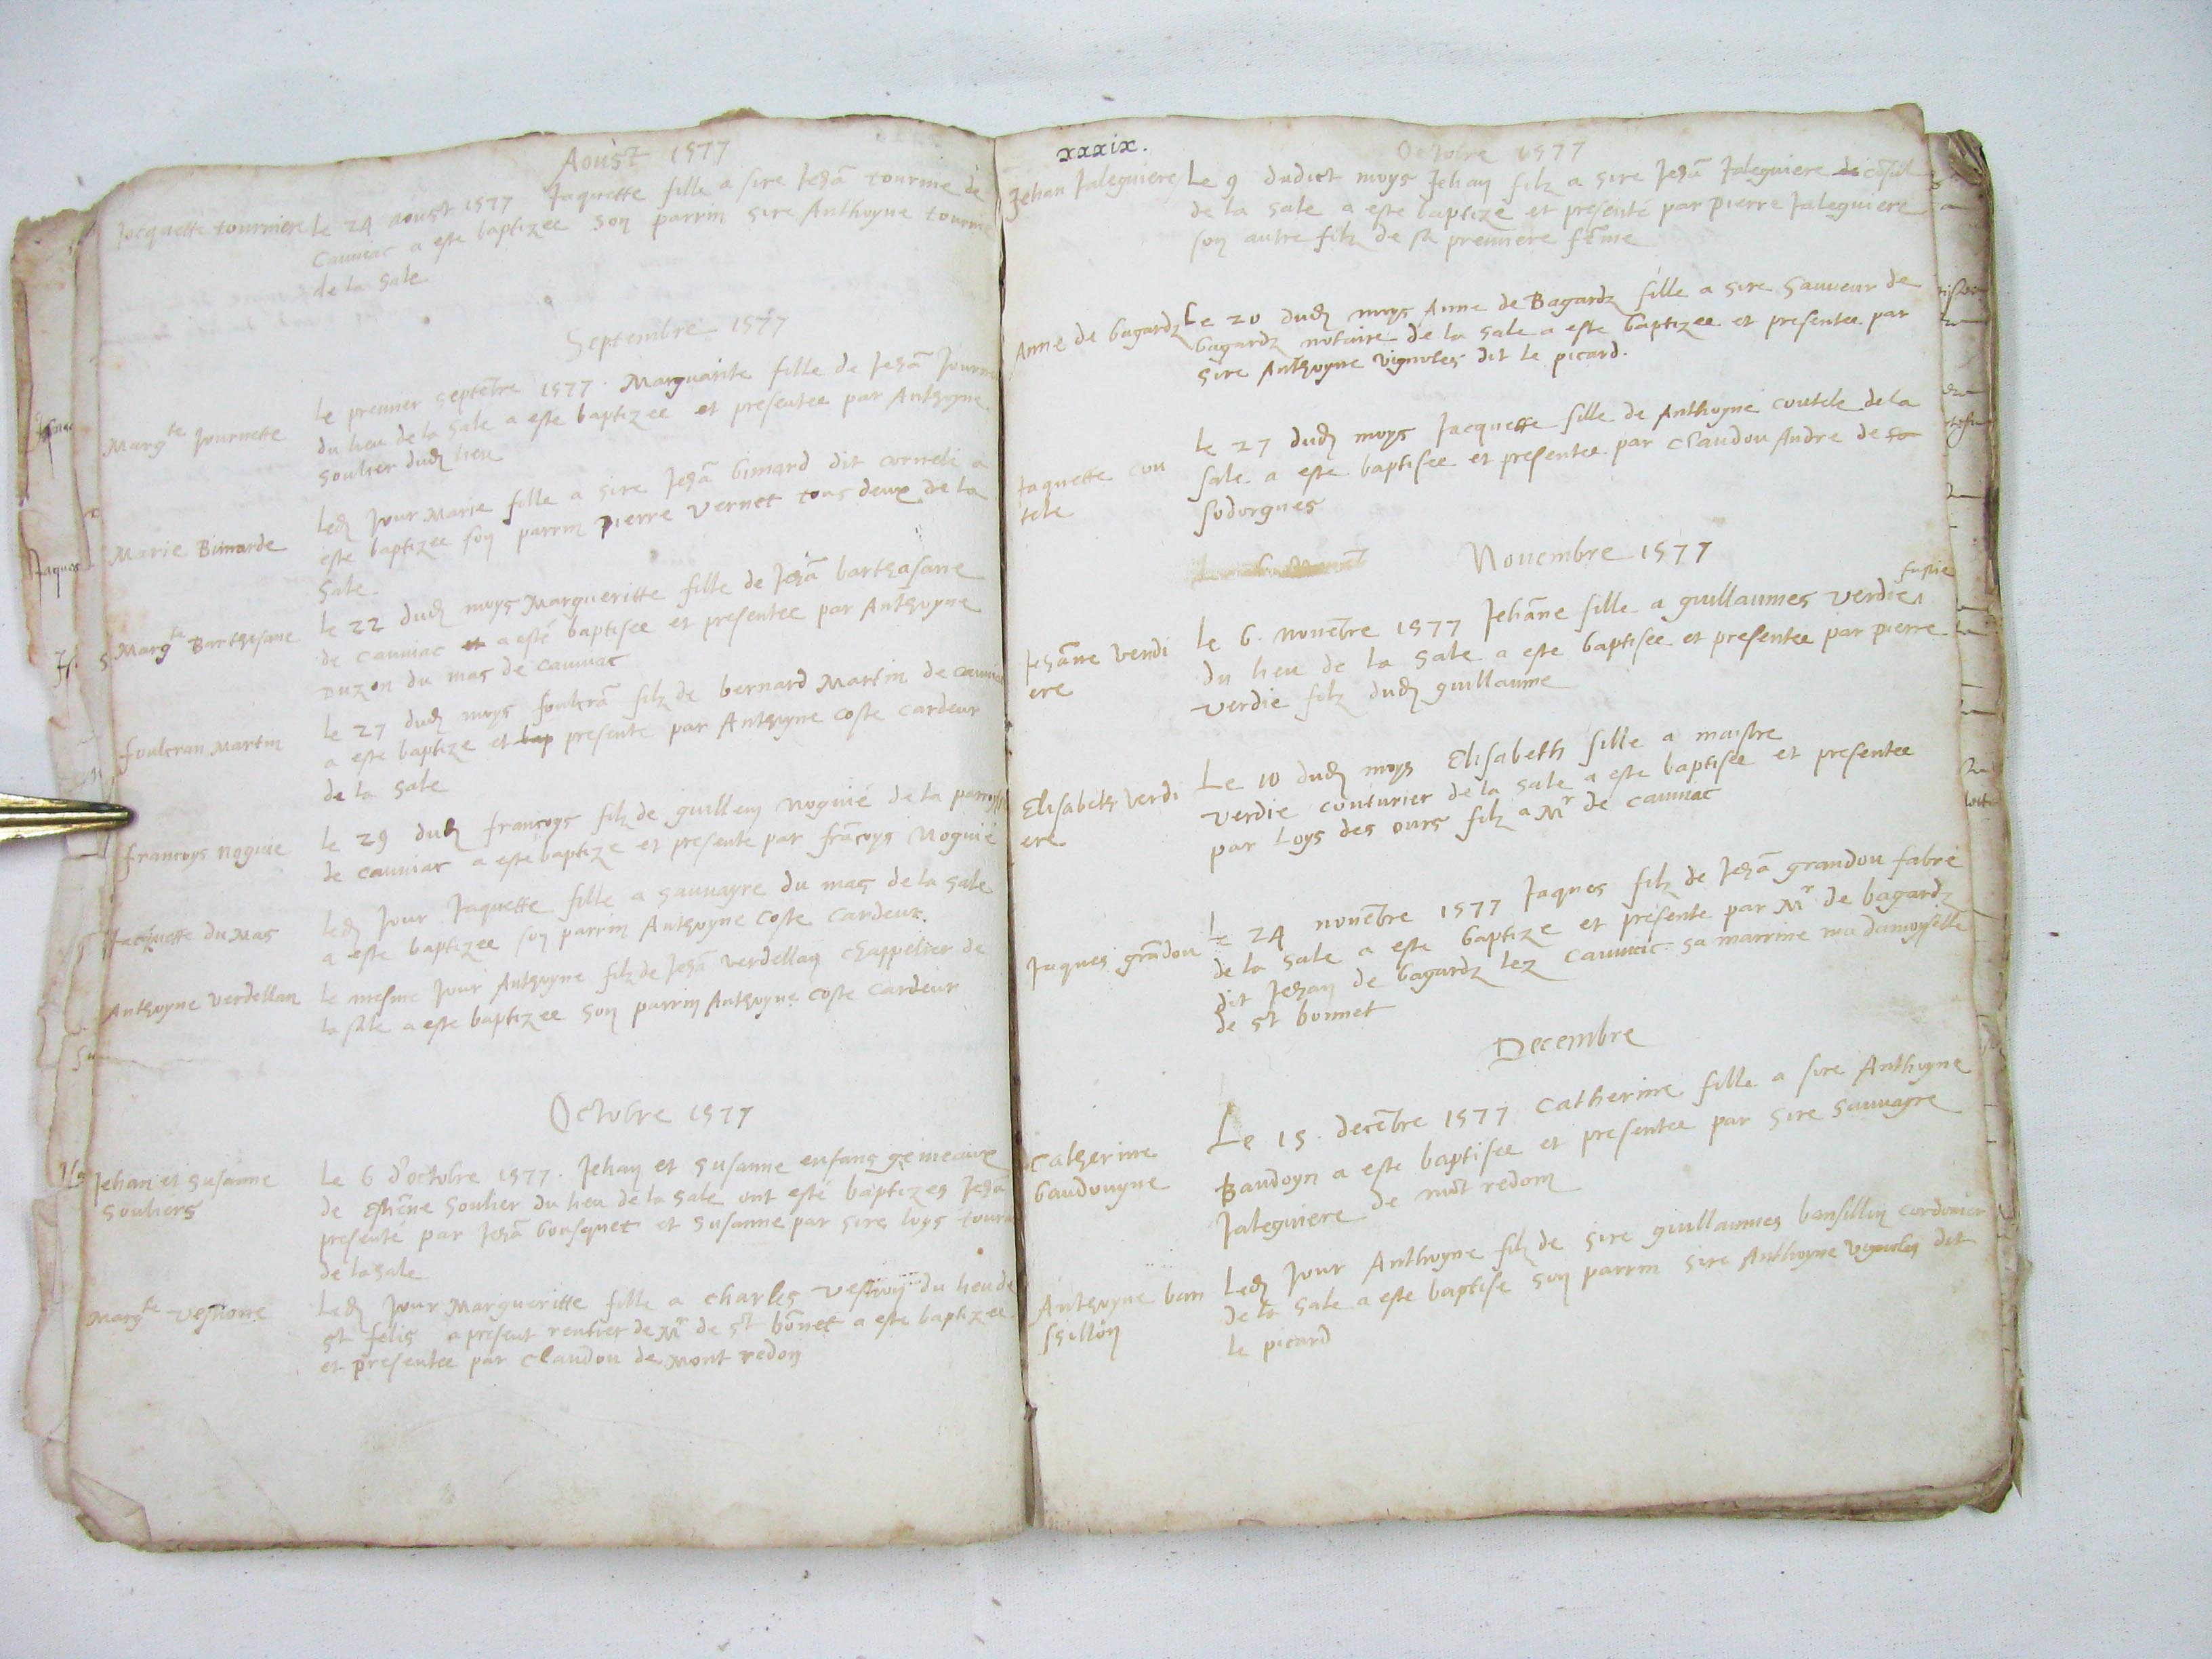 Aoust 1577
Jacquette tourniere
Le 24 aoust 1577 Jaquette fille a sire Jehã tournie de
Cauviac a este baptizee son parrin sire Anthoyne tournie
de la Sale
Septembre 1577
Margte Journette
Le premier septẽbre 1577. Marguarite fille de Jehã Journe
du lieu de la Sale a este baptizee et presentee par Anthoyne
Soulier dud lieu
Marie Bimarde
Led Jour Marie fille a sire Jehã bimard dit corneli a
este baptizee son parrin Pierre Vernet tous deux de la
Sale.
Margte Barthasane
Le 22 dud moys Margueritte fille de Jehã barthasane
de Cauviac et a esté baptisee et presentee par Anthoyne
Duzon du mas de Cauviac
foulcran Martin
Le 27 dud moys foulcrã filz de bernard Martin de cauviac
a este baptize et bap presente par Anthoyne Coste cardeur
de la Sale
francoys Noguie
Le 29 dud françoys filz de guillem Noguié de la parroisse
de cauviac a esté baptize et presente par frãcoys Noguié
Jacquette du Mas
Led Jour Jaquette fille a sauvayre du mas de la Sale
a este baptizee son parrin Anthoyne Coste Cardeur.
Anthoyne Verdellan
Le mesme Jour Anthoyne filz de Jehã Verdellan Chappelier de
la sale a este baptizee son parrin Anthoyne Coste Cardeur
Octobre 1577
Jehan et Susanne
Souliers
Le 6 d'octobre 1577. Jehan et Susanne enfans gemeaux
de Estiẽne Soulier du lieu de la Sale ont esté baptizes Jehã
presenté par Jehã bousquet et Susanne par sire loys tourn
de la Sale
Margte Vestione
Led Jour Margueritte fille a Charles Vestion du lieu de
st felis a present rentier de Mr de st bõnet a este baptizee
et presentee par Claudou de Mont redon
xxxix.
Octobre 1577
Jehan Jaleguiere
Le 9 dudict moys Jehan filz a sire Jehã Jaleguiere de cõsul
de la Sale a este baptizé et presenté par pierre Jaleguiere
son autre filz de sa premiere fẽme
Anne de bagardz
Le 20 dud moys Anne de Bagardz fille a sire Sauveur de
bagardz notaire de la Sale a este baptizee et presentee par
Sire Anthoyne Vignoles dit le picard.
Jaquette cou
tele
Le 27 dud moys Jacquette fille de Anthoyne coutele de la
Sale a este baptisee et presentee par Claudou Andre de sa
sodorgues
Novembre 1577
Jehãne Verdi
ere
Le 6. novẽbre 1577 Jehãne fille a guillaumes Verdie fustie
du lieu de la Sale a este baptisee et presentee par pierre
Verdie filz dud guillaume
Elisabeth Verdi
ere
Le 10 dud moys Elisabeth fille a maistre
Verdie couturier de la Sale a este baptisee et presentee
par Loys des ours filz a Mr de cauviac
Jaques grãdou
Le 24 novẽbre 1577 Jaques filz de Jehã grandou fabre
de la Sale a este baptize et presente par Mr de bagardz
dit Jehan de bagardz lez cauviac. sa marrine ma damoyselle
de st bonnet
Decembre
Catherine
baudouyne
Le 15. decẽbre 1577 Catherine fille a sire Anthoyne
Baudoyn a este baptisee et presentee par Sire Sauvayre
Jaleguiere de mõt redon
Anthoyne ban
ssillon
Led Jour Anthoyne filz de sire guillaumes bansillin cordonier
de la Sale a este baptise son parrin Sire Anthoyne Vignoles dit
le picard